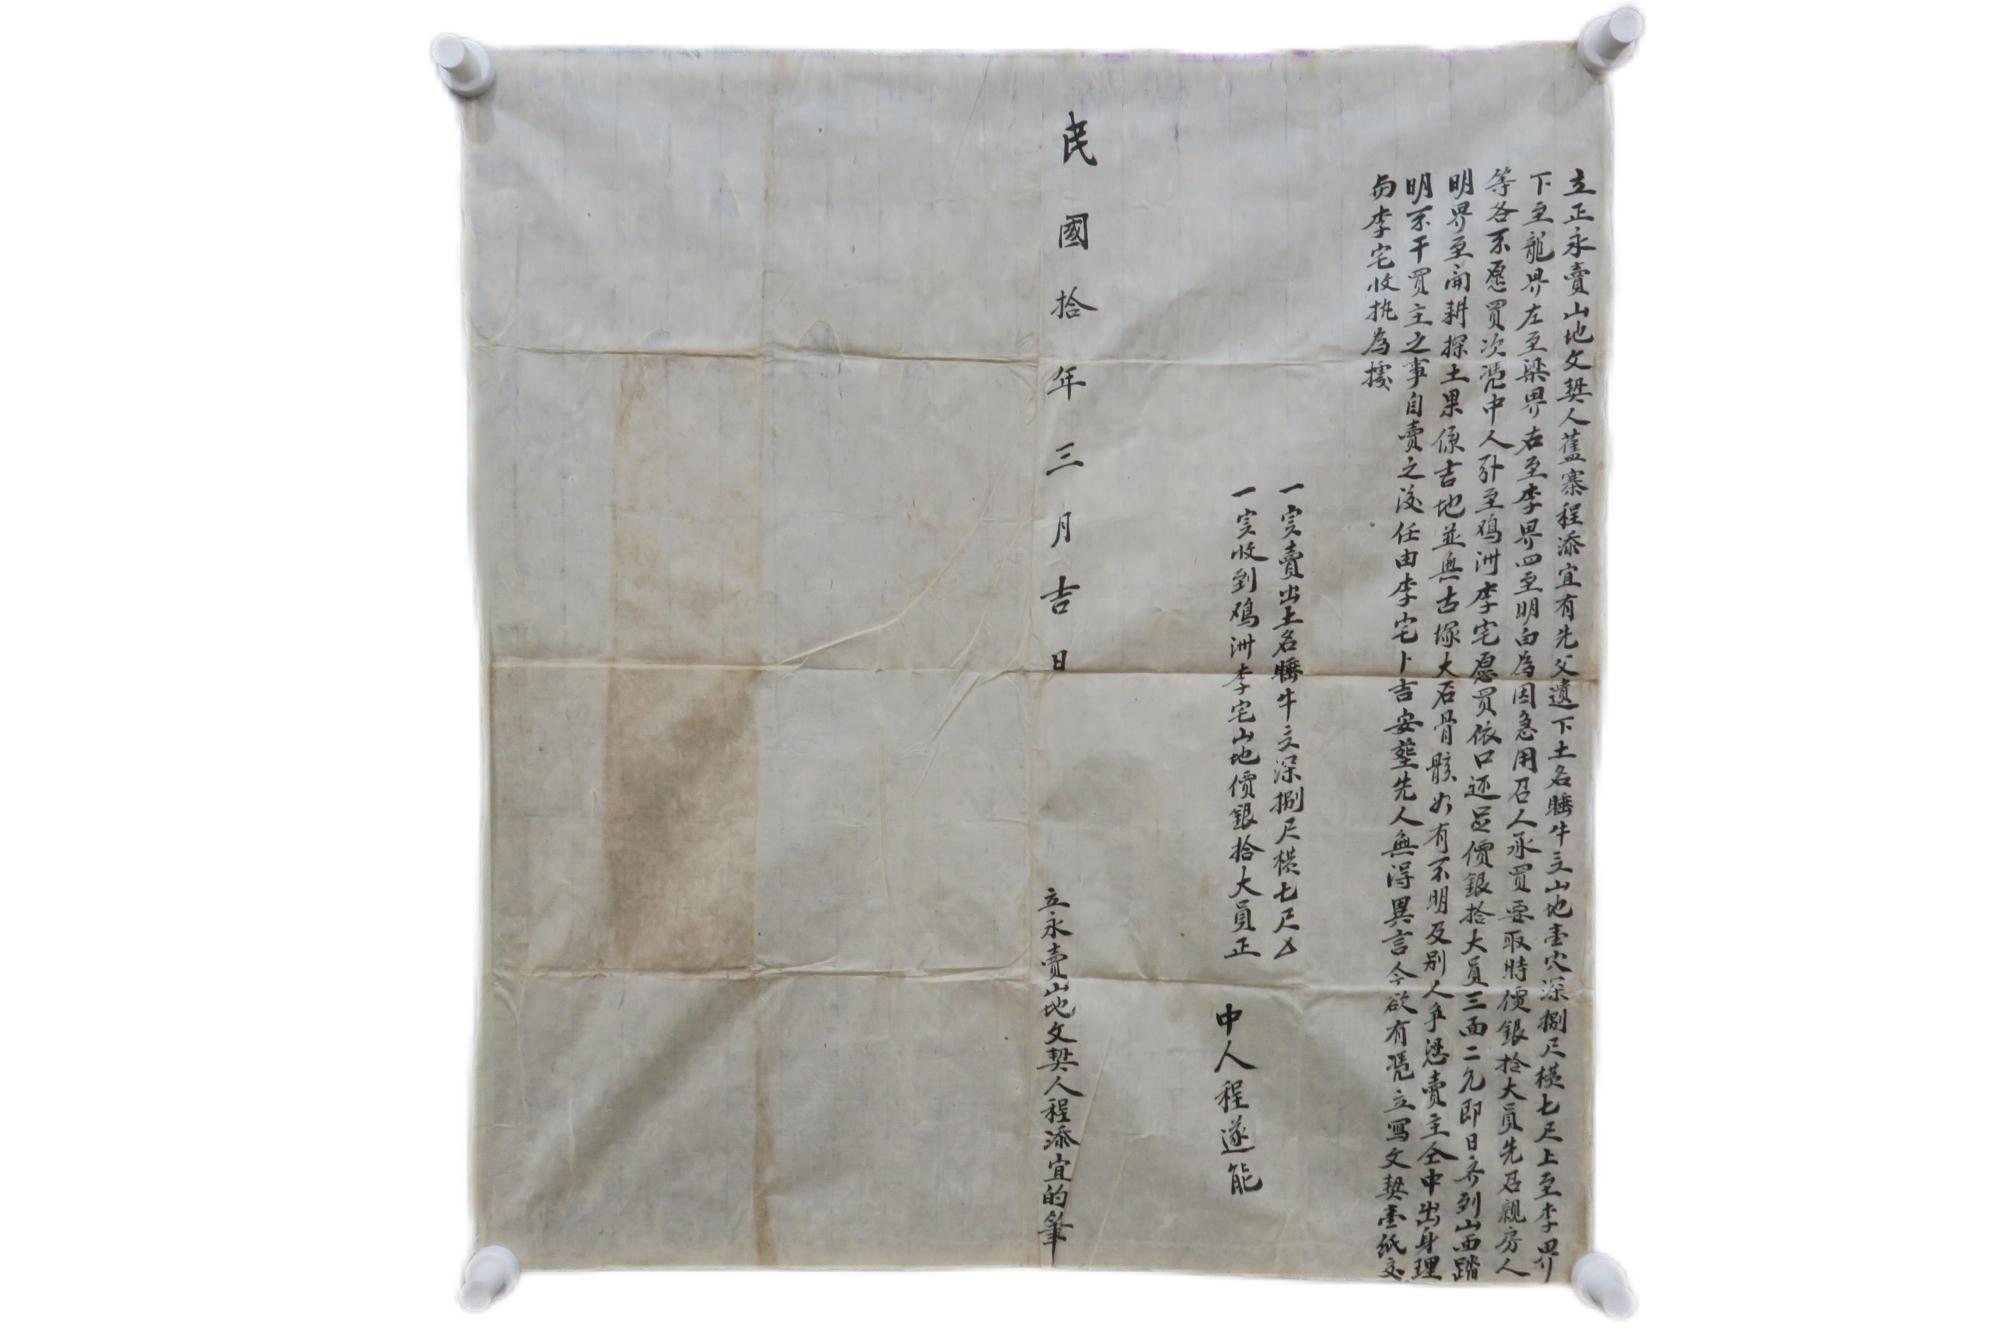 立正永賣山地文契人舊寨程添宜有先父遺下土名睡牛立山地壹穴深捌尺橫七尺上至李界
下至龍界左至梁界右至李界四至明白為因急用召人承買要取時價銀拾大員先召親房人
等各不愿買次凴中人引至鳮洲李宅愿買依口还足價銀拾大員三面二允即日齐到山面踏
明界至開耕探土果係吉地並無古塚大石骨骸如有不明及别人爭㥶賣主仝中出身理
明不干買主之事自賣之後任由李宅卜吉安塟先人無得異言今欲有凴立寫文契壹紙交
與李宅收执為據
一寔賣出土名睡牛立深捌尺橫七尺正
一寔收到鳮洲李宅山地價銀拾大員正
中人程遂能
民國拾年三月吉日
立永賣山地文契人程添宜的筆